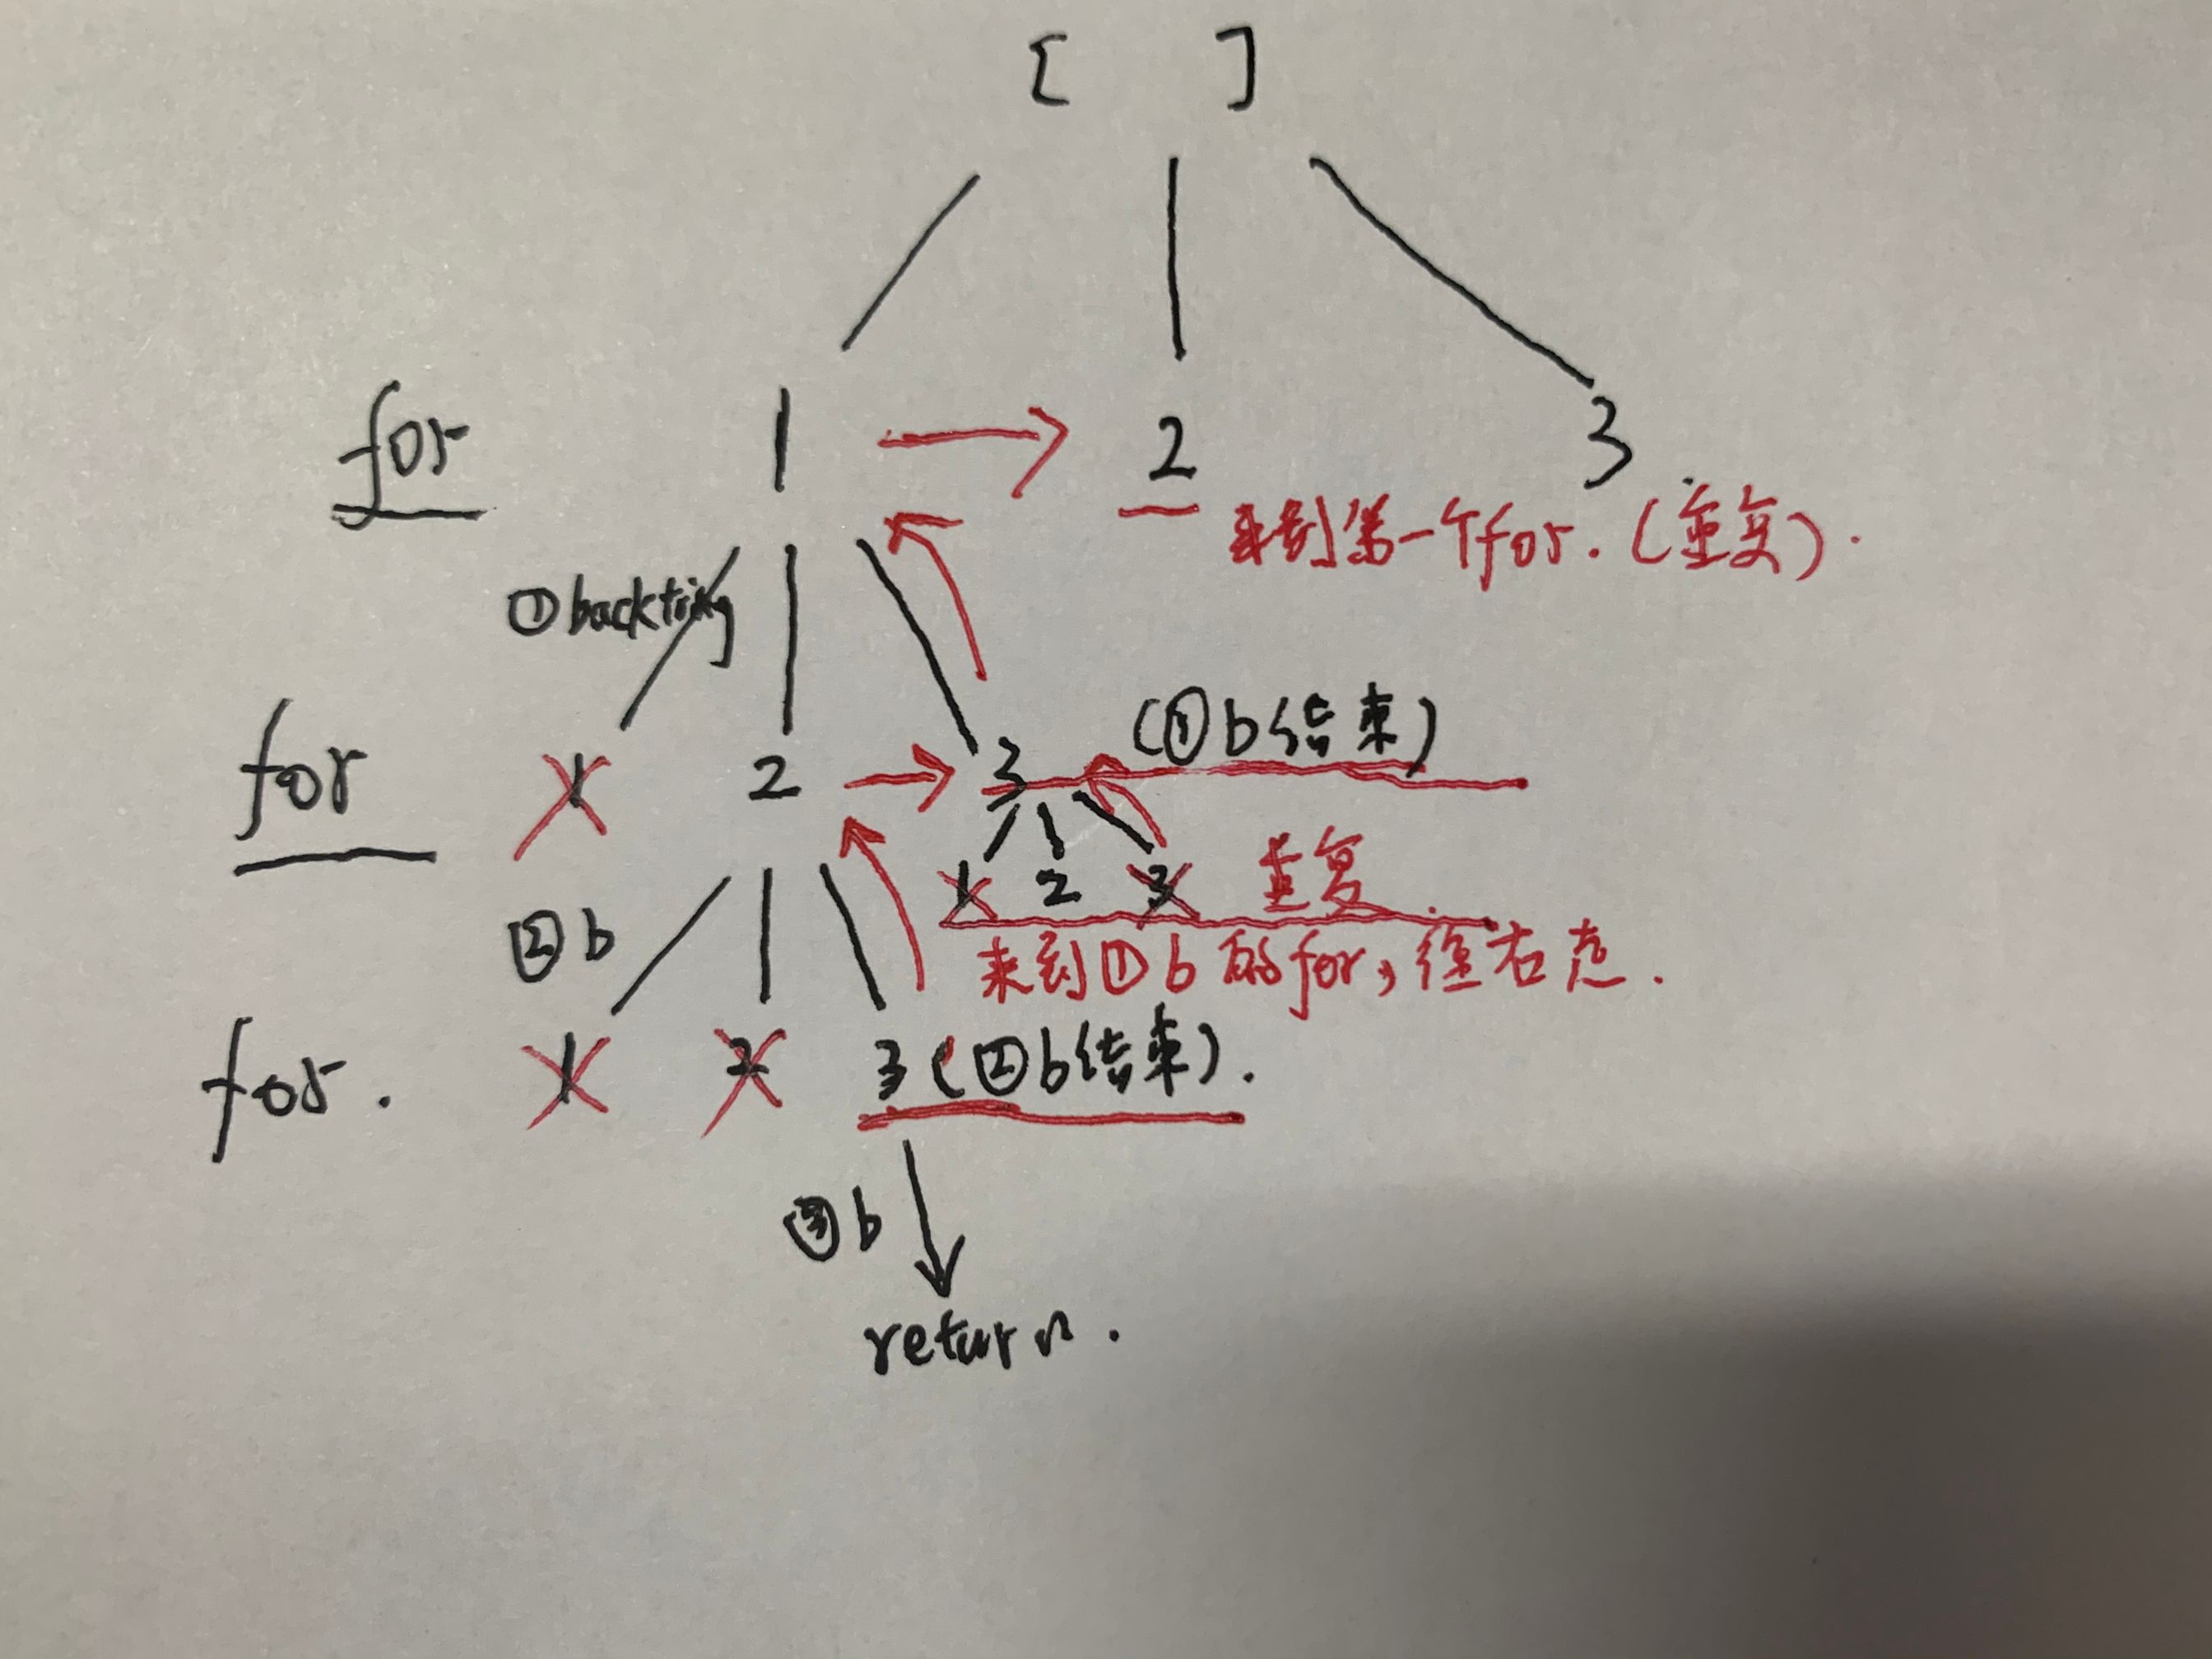 [ ]
for 1 2 3
来到第一个for.(重复).
①backtring
(①b结束)
for 1 2 3
1 2 3 重复
②b
来到①b的for,往右走.
for. 1 2 3(②b结束).
③b
return.